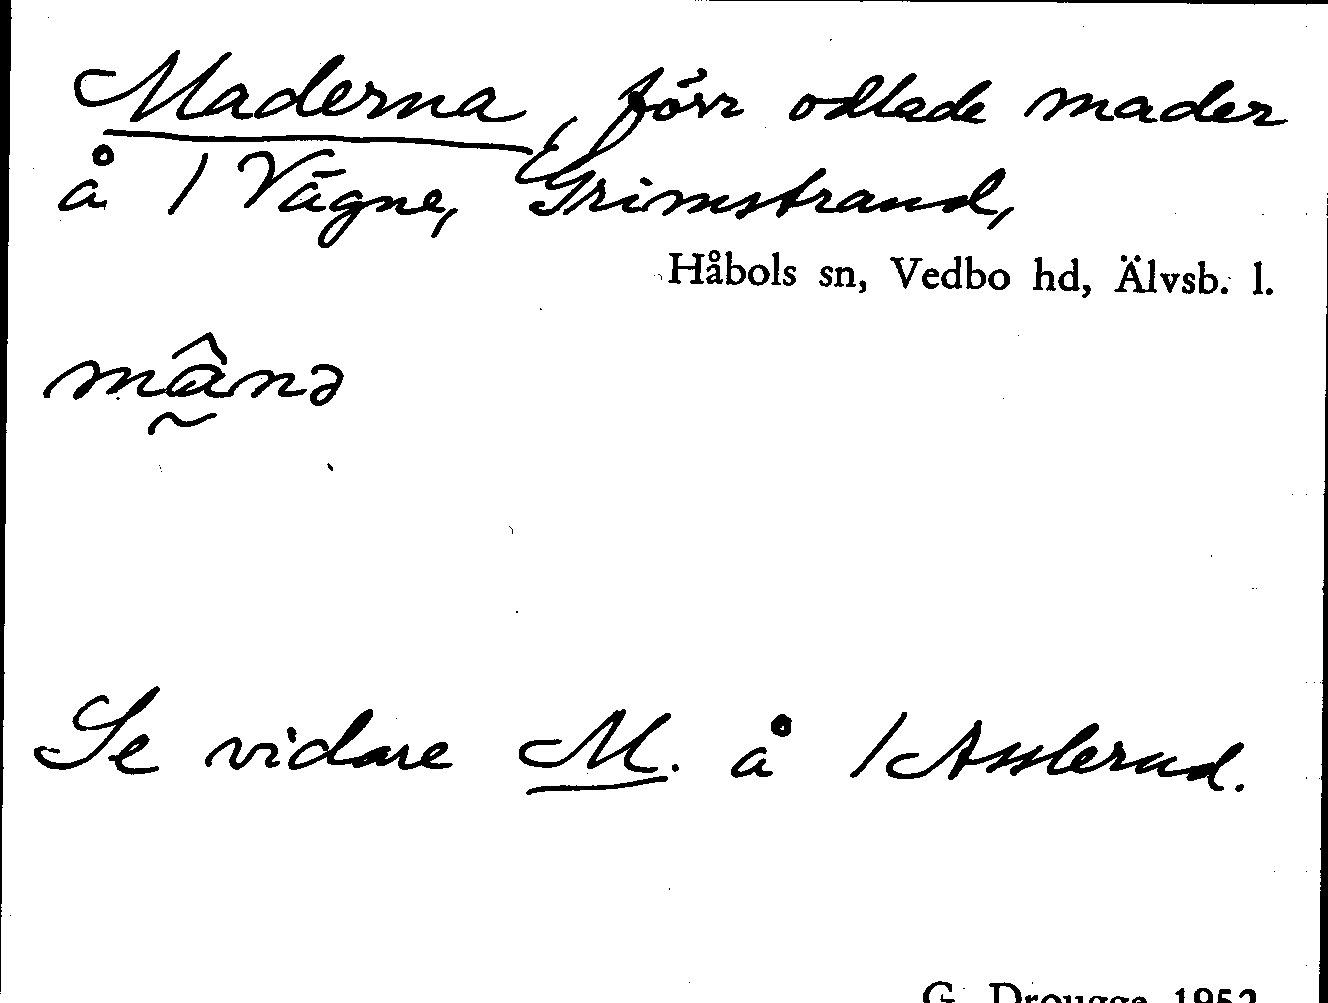 Maderna, förr odlade mader
å 1 Vägne, Grimstrand,
Håbols sn, Vedbo hd, Älvsb. l.
mâ̰nə
Se vidare M. å 1 Asslerud.
G. Drougge 1952